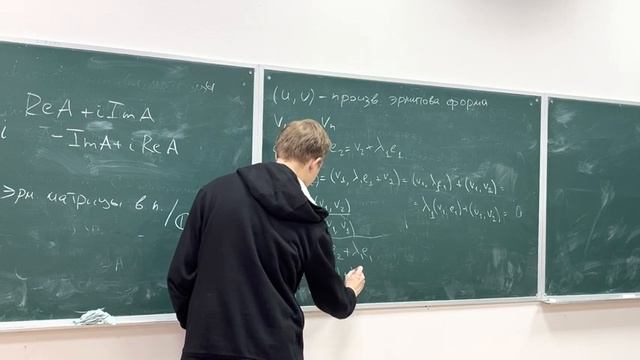 ReA + i ImA
i -ImA + i ReA
эрм матрицы в п.
(u, v) - произв эрмитова форма
V Vn
e₂ = v₂ + λ₁e₁
) = (v₁, λ₁e₁ + v₂) = (v₁, λe₁) + (v₁, v₂) =
= λ₁(v₁, e₁) + (v₁, v₂) = 0
, v₂)
, v₁)
₂ + λ₁e₁